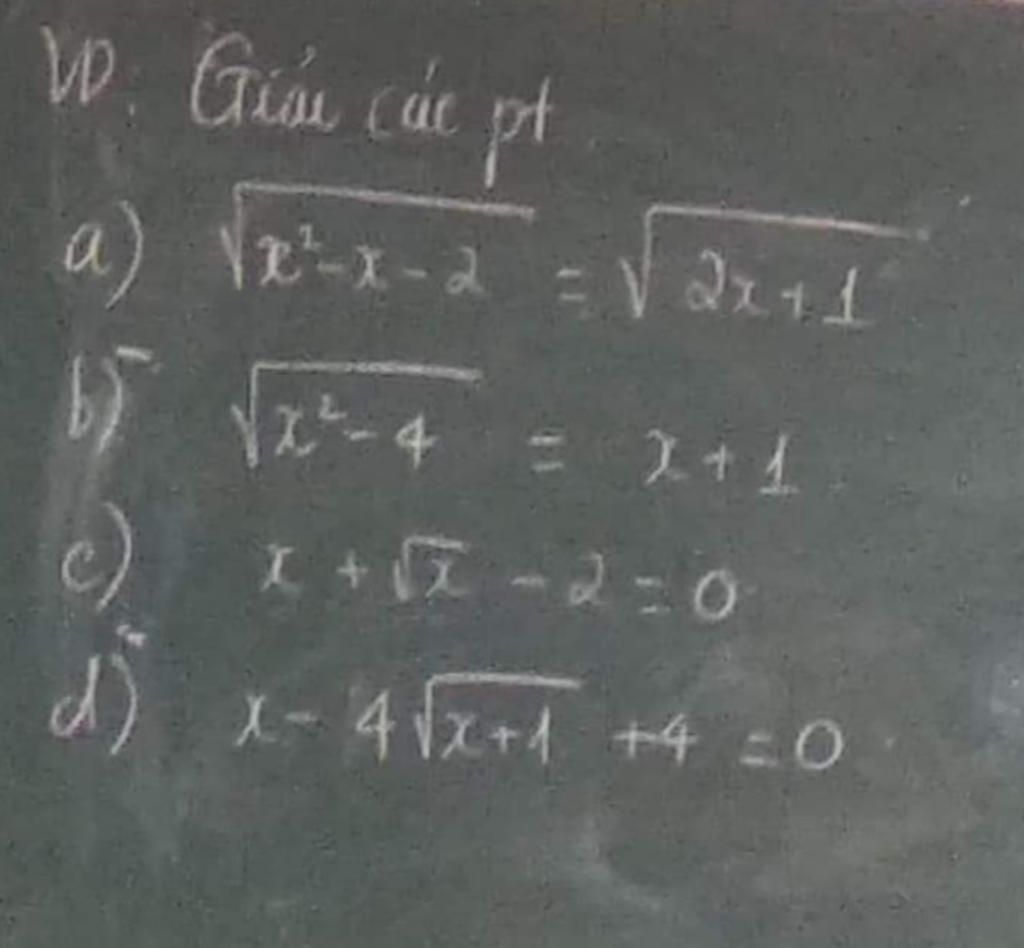 VD: Giải các pt
a) √(x²-x-2) = √(2x+1)
b) √(x²-4) = x+1
c) x + √x - 2 = 0
d) x - 4√(x+1) + 4 = 0